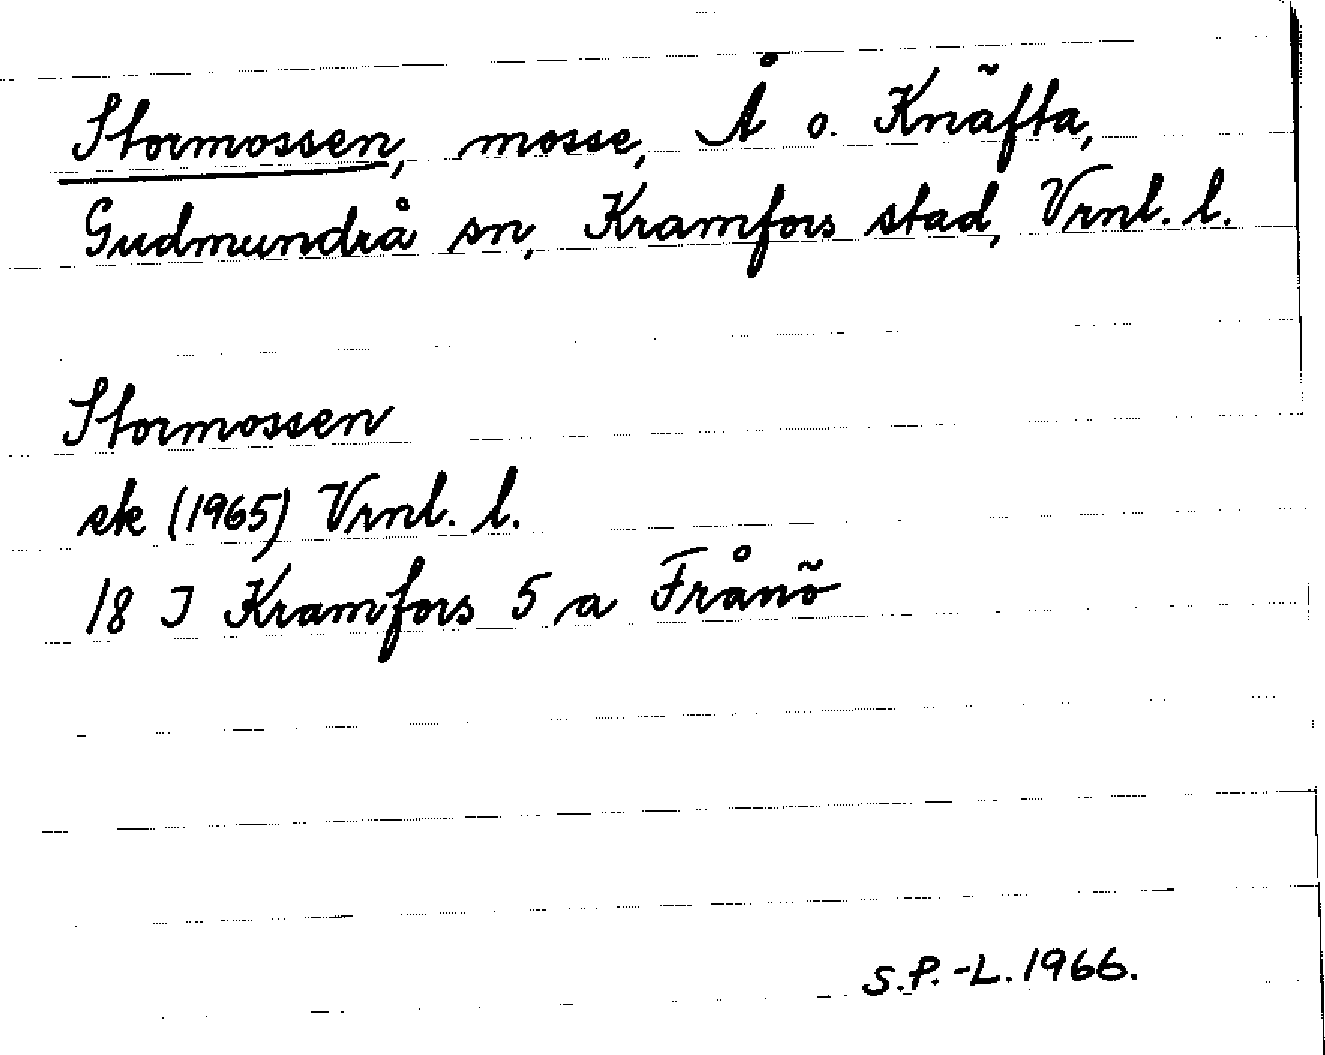 Stormossen, mosse, Å o. Knäfta,
Gudmundrå sn, Kramfors stad, Vrnl. l.
Stormossen
ek (1965) Vrnl. l.
18 I Kramfors 5 a Frånö
S.P.-L. 1966.